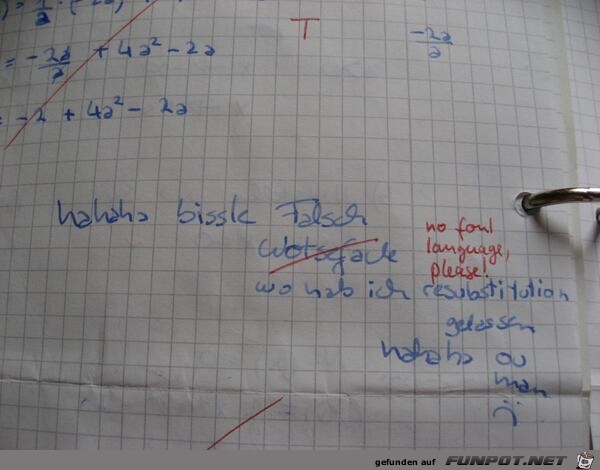 T
-2a/a
= -2a/a + 4a² - 2a
= -2 + 4a² - 2a
hahaha bissle Falsch
no foul
language,
please!
wo hab ich resubstitution
gelassen
hahaha ou
man
:(
gefunden auf FUNPOT.NET